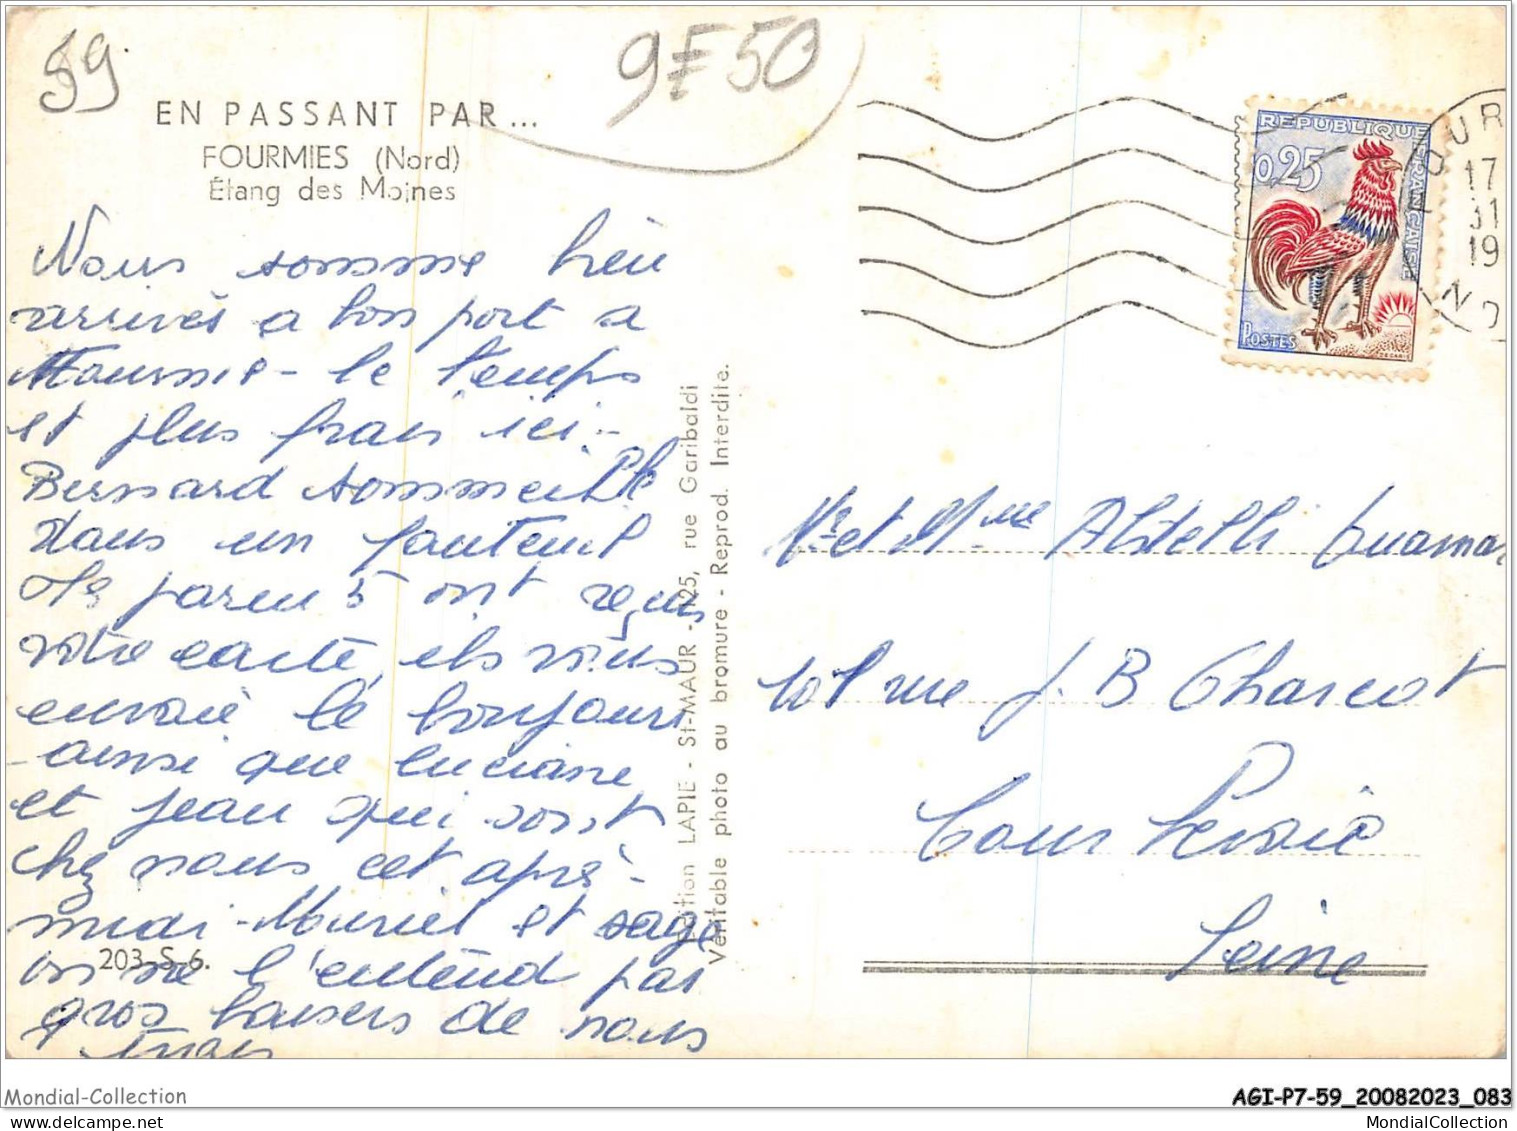 59
9F50
EN PASSANT PAR...
FOURMIES (Nord)
Étang des Moines
Nous somme bien
arrivés a bon port a
Fourmie - le temps
et plus frais ici -
Bernard sommeille
dans un fauteuil
les paren5 ont reçus
votre carte, ils vous
envoie le bonjour
ainsi que luciane
et jean qui sont
chez nous cet après-
midi - Muriel et sage
on ne l'entend pas
gros baisers de nous
203-S-6.
Édition LAPIE - St-MAUR - 25, rue Garibaldi
Véritable photo au bromure - Reprod. Interdite.
REPUBLIQUE FRANÇAISE
0,25
POSTES
DECARIS
OUR
17
31
19
NO
Mr et Mme
101 rue J. B Charcot
Courbevoie
Seine
Mondial-Collection
AGI-P7-59_20082023_083
MondialCollection